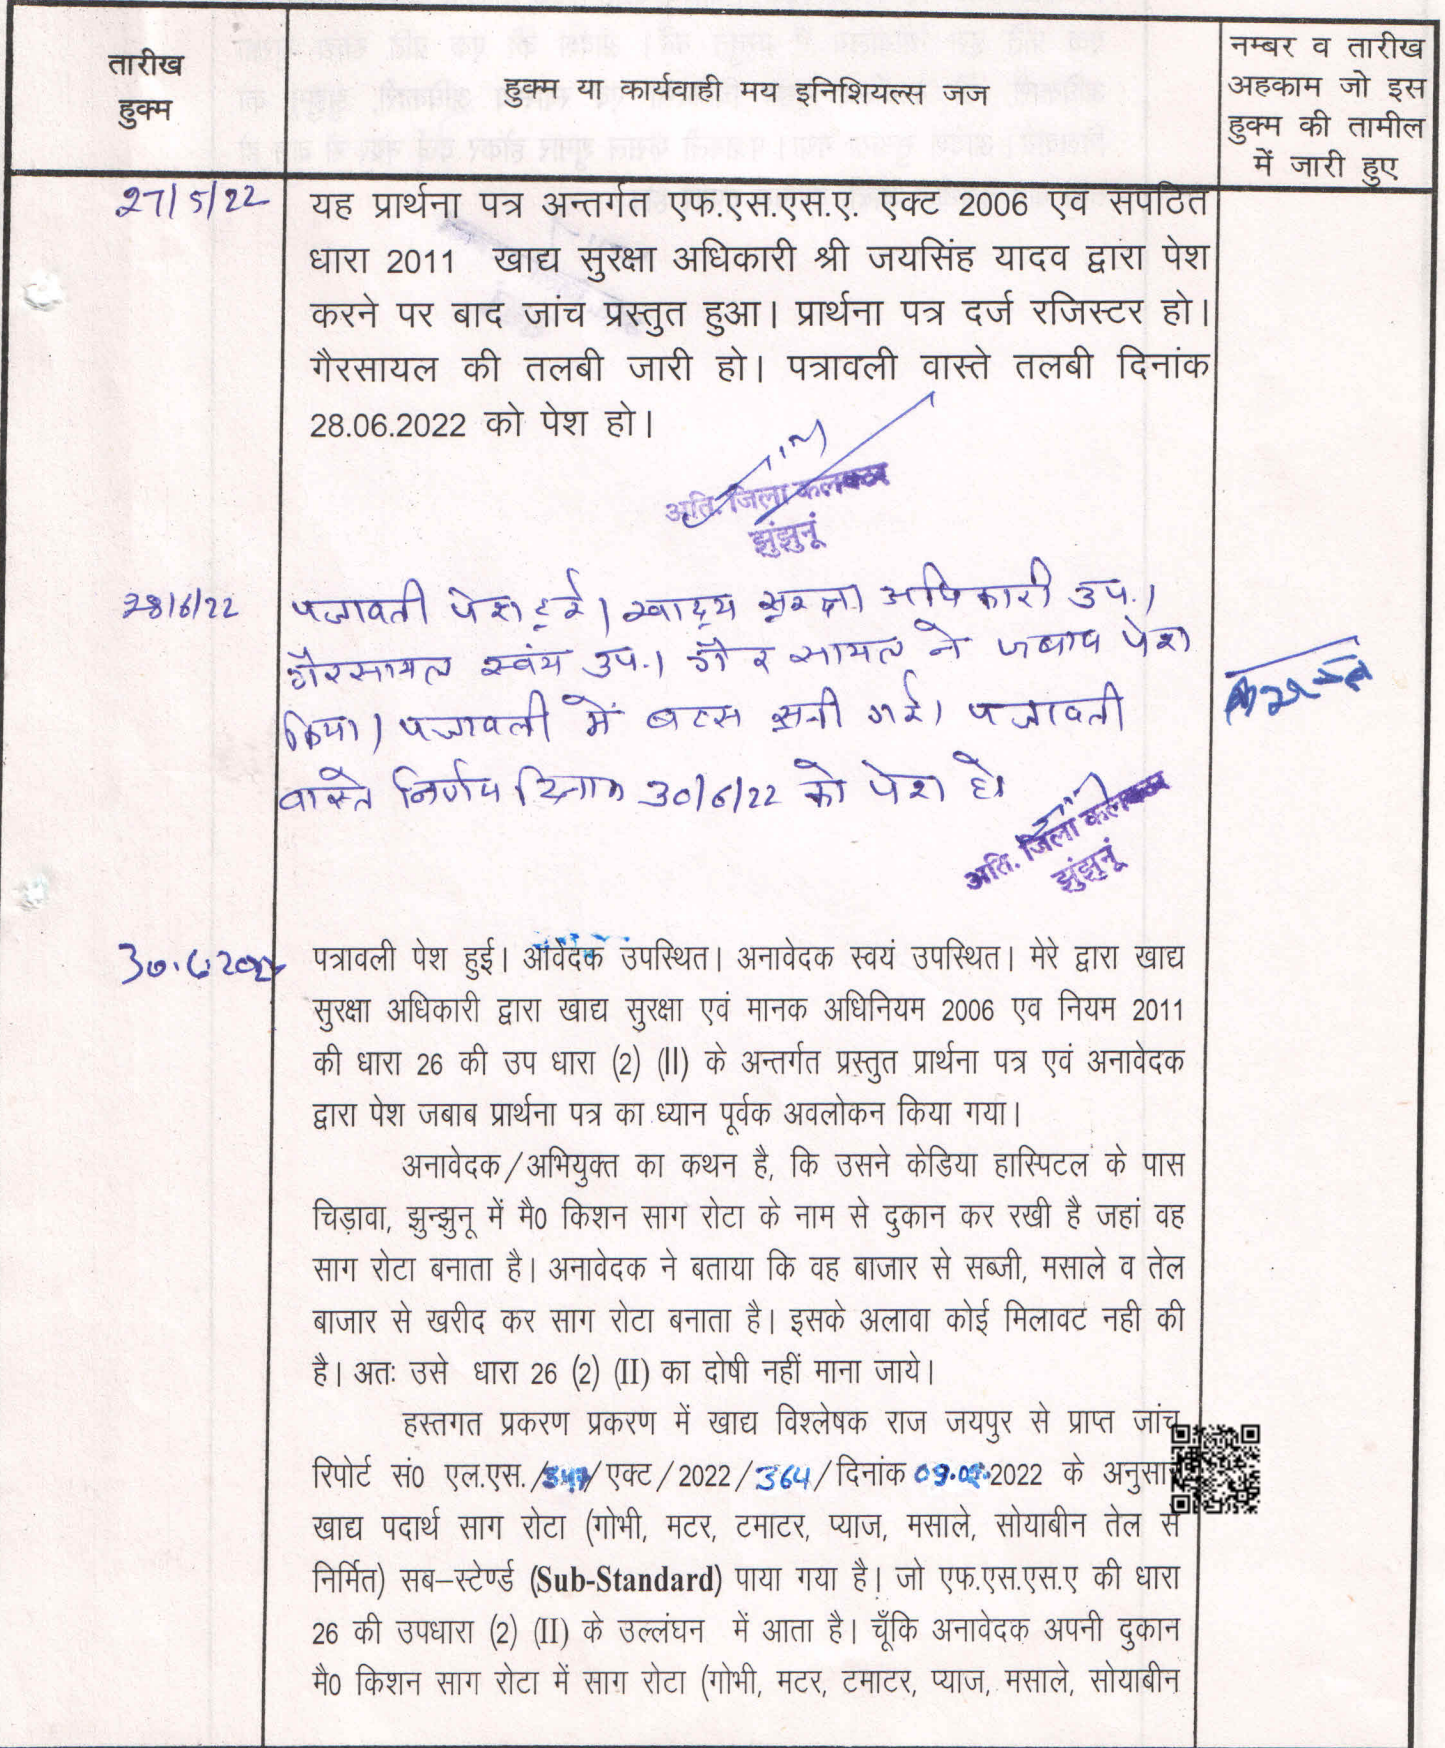 तारीख
हुक्म
हुक्म या कार्यवाही मय इनिशियल्स जज
नम्बर व तारीख
अहकाम जो इस
हुक्म की तामील
में जारी हुए
27/5/22
यह प्रार्थना पत्र अन्तर्गत एफ.एस.एस.ए. एक्ट 2006 एव सपठित
धारा 2011 खाद्य सुरक्षा अधिकारी श्री जयसिंह यादव द्वारा पेश
करने पर बाद जांच प्रस्तुत हुआ। प्रार्थना पत्र दर्ज रजिस्टर हो।
गैरसायल की तलबी जारी हो। पत्रावली वास्ते तलबी दिनांक
28.06.2022 को पेश हो।
अति. जिला कलक्टर
झुंझुनूं
28/6/22
पत्रावली पेश हुई। खाद्य सुरक्षा अधिकारी उप.।
गैरसायल स्वंय उप.। गैर सायल ने जबाव पेश
किया। पत्रावली में बहस सुनी गई। पत्रावली
वास्ते निर्णय दिनांक 30/6/22 को पेश हो
अति. जिला कलक्टर
झुंझुनूं
30.6.2022
पत्रावली पेश हुई। आवेदक उपस्थित। अनावेदक स्वयं उपस्थित। मेरे द्वारा खाद्य
सुरक्षा अधिकारी द्वारा खाद्य सुरक्षा एवं मानक अधिनियम 2006 एव नियम 2011
की धारा 26 की उप धारा (2) (II) के अन्तर्गत प्रस्तुत प्रार्थना पत्र एवं अनावेदक
द्वारा पेश जबाब प्रार्थना पत्र का ध्यान पूर्वक अवलोकन किया गया।
अनावेदक/अभियुक्त का कथन है, कि उसने केडिया हास्पिटल के पास
चिड़ावा, झुन्झुनू में मै0 किशन साग रोटा के नाम से दुकान कर रखी है जहां वह
साग रोटा बनाता है। अनावेदक ने बताया कि वह बाजार से सब्जी, मसाले व तेल
बाजार से खरीद कर साग रोटा बनाता है। इसके अलावा कोई मिलावट नही की
है। अतः उसे धारा 26 (2) (II) का दोषी नहीं माना जाये।
हस्तगत प्रकरण प्रकरण में खाद्य विश्लेषक राज जयपुर से प्राप्त जांच
रिपोर्ट सं0 एल.एस./347/एक्ट/2022/364/दिनांक 2022 के अनुसार
खाद्य पदार्थ साग रोटा (गोभी, मटर, टमाटर, प्याज, मसाले, सोयाबीन तेल से
निर्मित) सब–स्टेण्र्ड (Sub-Standard) पाया गया है। जो एफ.एस.एस.ए की धारा
26 की उपधारा (2) (II) के उल्लंघन में आता है। चूँकि अनावेदक अपनी दुकान
मै0 किशन साग रोटा में साग रोटा (गोभी, मटर, टमाटर, प्याज, मसाले, सोयाबीन